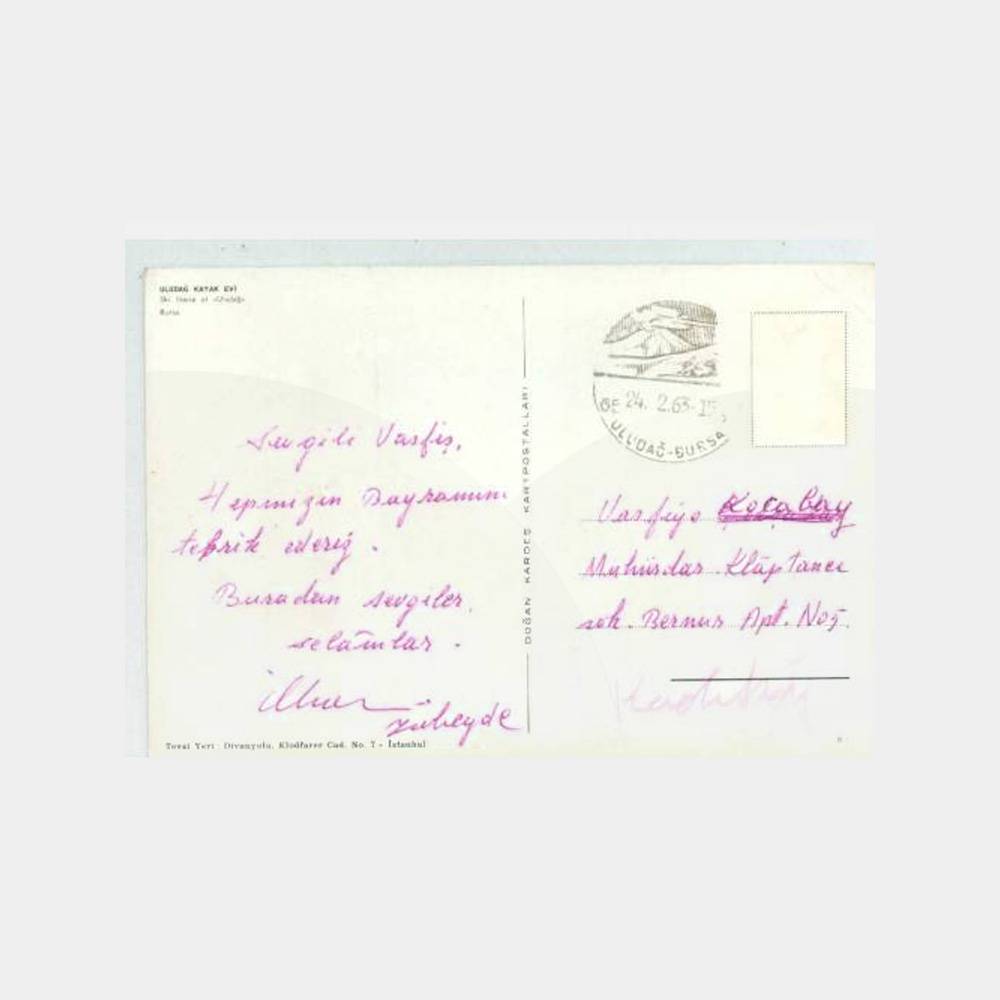 ULUDAĞ KAYAK EVİ
Ski House of «Uludağ»
Bursa
Sevgili Vasfiş,
Hepinizin Bayramını
tebrik ederiz.
Buradan sevgiler,
selâmlar.
İlhan
Zübeyde
Tevzi Yeri: Divanyolu, Klodfarer Cad. No. 7 - İstanbul
DOĞAN KARDEŞ KARTPOSTALLARI
24. 2.63-15
ULUDAĞ-BURSA
Vasfiye Kocabay
Mühürdar. Klüptaneı
sok. Bernur Apt. No5.
Kadıköy